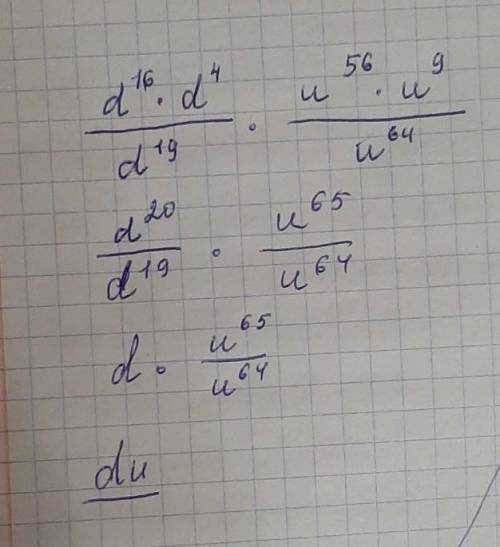 d¹⁶·d⁴/d¹⁹ · u⁵⁶·u⁹/u⁶⁴
d²⁰/d¹⁹ · u⁶⁵/u⁶⁴
d · u⁶⁵/u⁶⁴
du